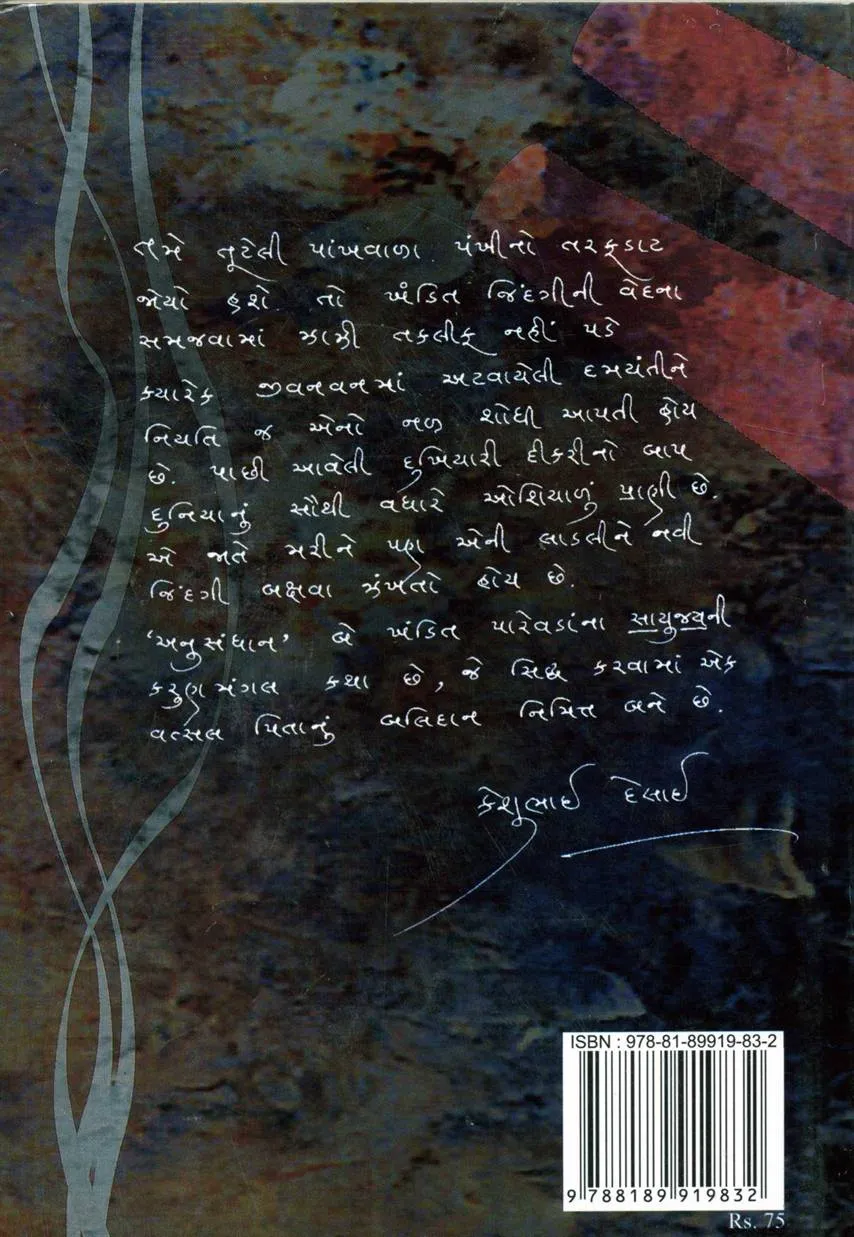 તમે તૂટેલી પાંખવાળા પંખીનો તરફડાટ
જોયો હશે તો ખંડિત જિંદગીની વેદના
સમજવામાં ઝાઝી તકલીફ નહીં પડે
ક્યારેક જીવનવનમાં અટવાયેલી દમયંતીને
નિયતિ જ એનો નળ શોધી આપતી હોય
છે. પાછી આવેલી દુખિયારી દીકરીનો બાપ
દુનિયાનું સૌથી વધારે ઓશિયાળું પ્રાણી છે.
એ જાતે મરીને પણ એની લાડલીને નવી
જિંદગી બક્ષવા ઝંખતો હોય છે.
'અનુસંધાન' બે ખંડિત પારેવડાંના સાયુજ્યની
કરુણમંગલ કથા છે, જે સિદ્ધ કરવામાં એક
વત્સલ પિતાનું બલિદાન નિમિત્ત બને છે.
કેશુભાઈ દેસાઈ
ISBN : 978-81-89919-83-2
9 788189 919832
Rs. 75